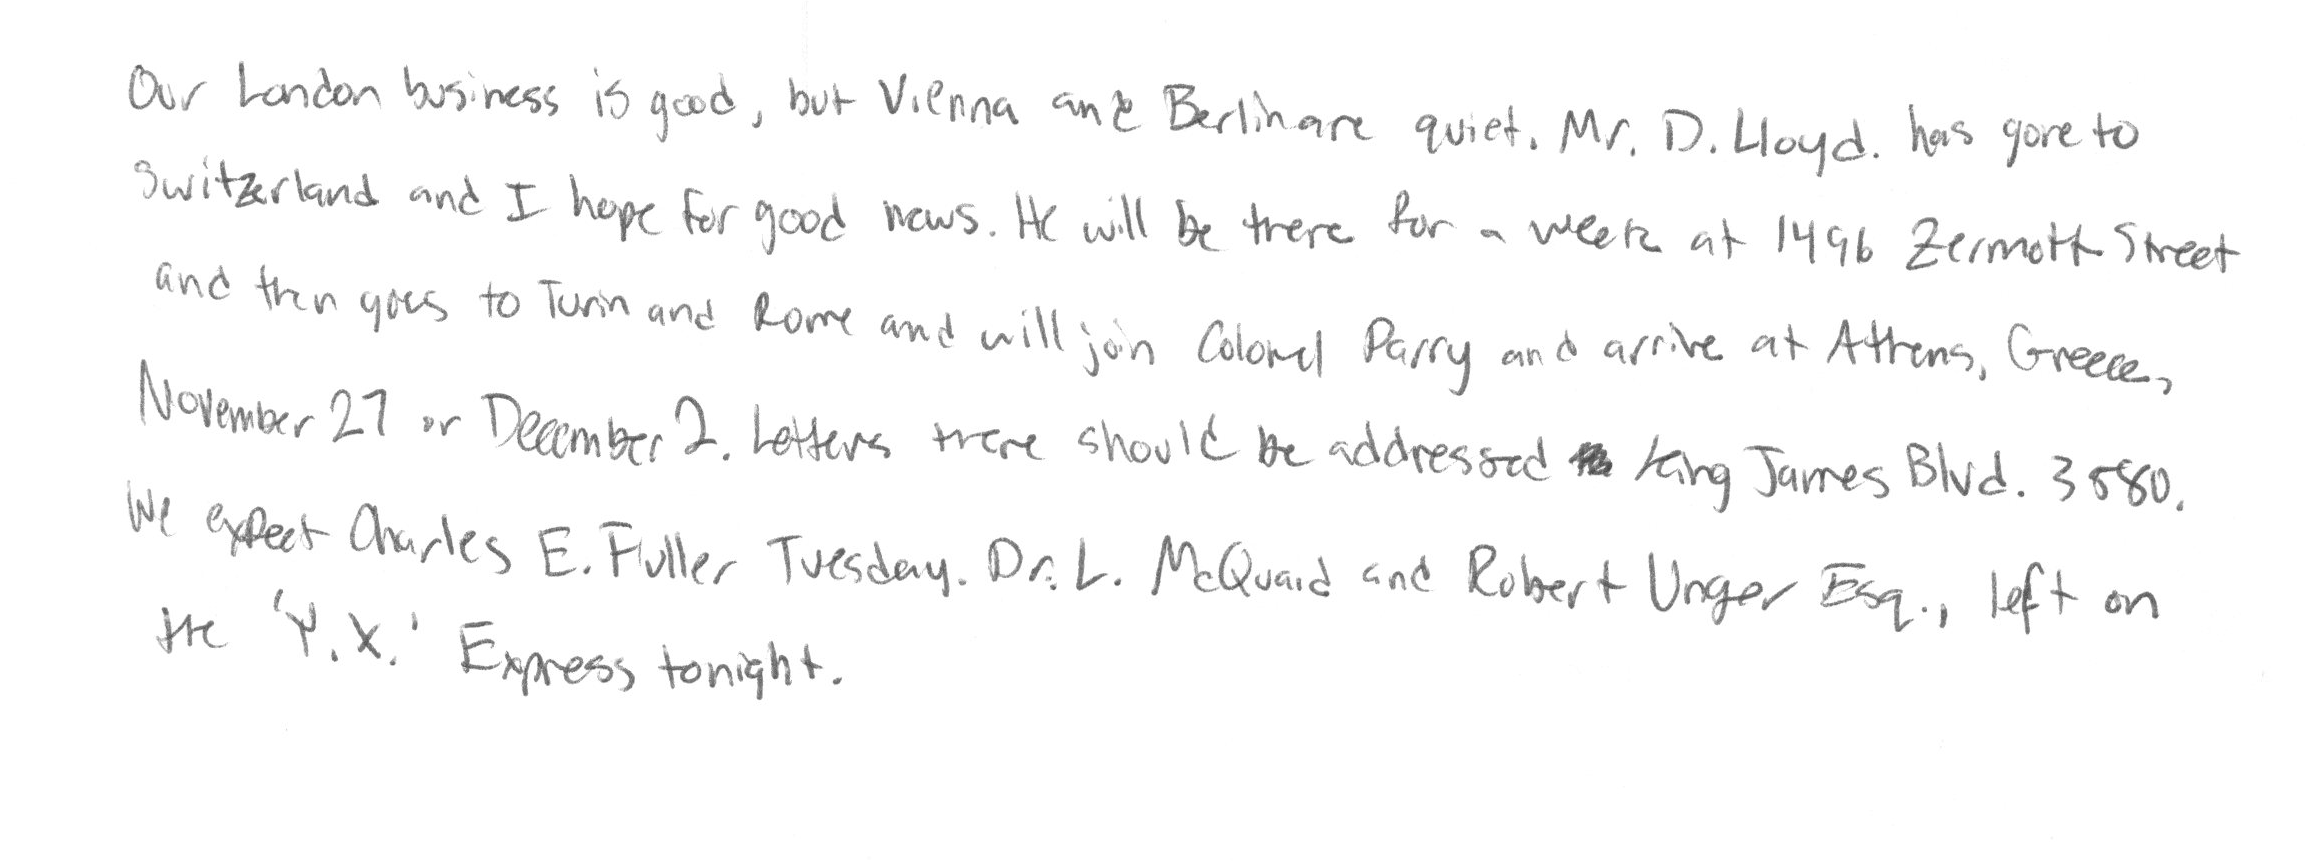 Our London business is good, but Vienna and Berlin are quiet. Mr. D. Lloyd. has gone to
Switzerland and I hope for good news. He will be there for a week at 1496 Zermott Street
and then goes to Turin and Rome and will join Colonel Parry and arrive at Athens, Greece,
November 27 or December 2. Letters there should be addressed King James Blvd. 3580.
We expect Charles E. Fuller Tuesday. Dr. L. McQuaid and Robert Unger Esq., left on
the 'Y.X.' Express tonight.